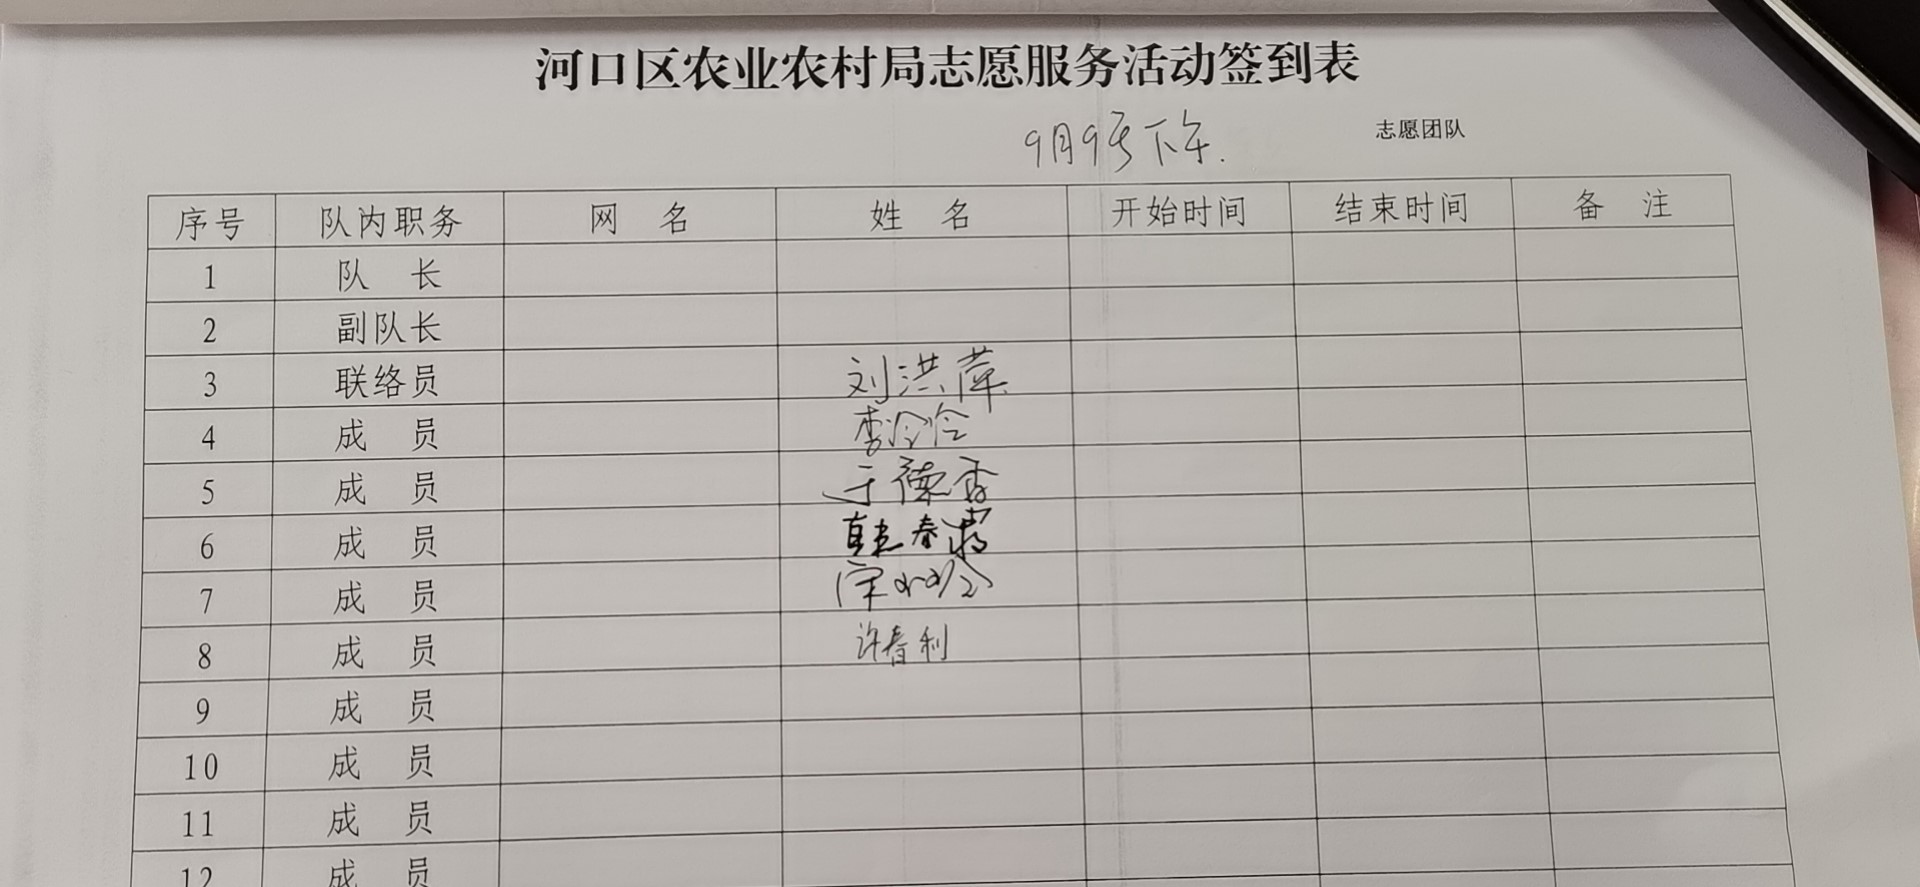 河口区农业农村局志愿服务活动签到表
9月9号下午.
志愿团队
序号 队内职务 网 名 姓 名 开始时间 结束时间 备 注
1 队 长
2 副队长
3 联络员 刘洪萍
4 成 员 李泠泠
5 成 员 于德香
6 成 员 春
7 成 员 宋
8 成 员 许春利
9 成 员
10 成 员
11 成 员
12 成 员